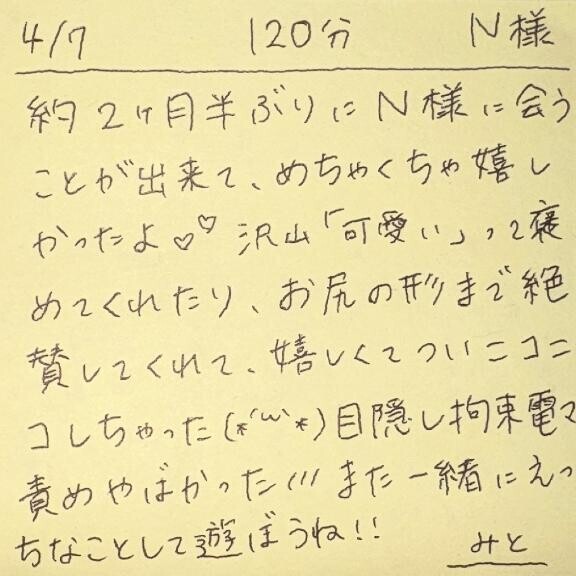 4/7 120分 N様
約2ヶ月半ぶりにN様に会う
ことが出来て、めちゃくちゃ嬉し
かったよ♡♡ 沢山「可愛い」って褒
めてくれたり、お尻の形まで絶
賛してくれて、嬉しくてついニコニ
コしちゃった(*´ω`*)目隠し拘束電マ
責めやばかった///また一緒にえっ
ちなことして遊ぼうね!!
みと